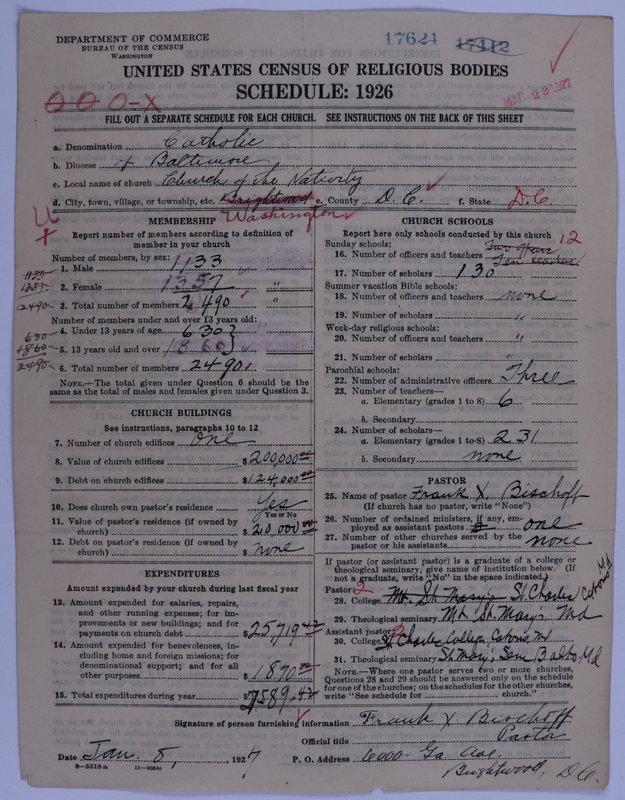 DEPARTMENT OF COMMERCE
BUREAU OF THE CENSUS
WASHINGTON
17624 17412
UNITED STATES CENSUS OF RELIGIOUS BODIES
SCHEDULE: 1926
MAR 23 1927
O O O-X
FILL OUT A SEPARATE SCHEDULE FOR EACH CHURCH. SEE INSTRUCTIONS ON THE BACK OF THIS SHEET
a. Denomination Catholic
b. Diocese of Baltimore
c. Local name of church Church of the Nativity
d. City, town, village, or township, etc. Brightwood e. County D.C. f. State D.C.
Washington
MEMBERSHIP
Report number of members according to definition of
member in your church
Number of members, by sex:
1. Male 1133
2. Female 1357 "
3. Total number of members 2490 "
Number of members under and over 13 years old:
4. Under 13 years of age 630
5. 13 years old and over 1860
6. Total number of members 2490
NOTE.—The total given under Question 6 should be
same as the total of males and females given under Question 3.
1133
1357
2490
630
1860
2490
CHURCH BUILDINGS
See instructions, paragraphs 10 to 12
7. Number of church edifices one
8. Value of church edifices $200,000.00
9. Debt on church edifices $124,000.00
10. Does church own pastor's residence Yes
Yes or No
11. Value of pastor's residence (if owned by
church) $20,000.00
12. Debt on pastor's residence (if owned by
church) $ none
EXPENDITURES
Amount expended by your church during last fiscal year
13. Amount expended for salaries, repairs,
and other running expenses; for im-
provements or new buildings; and for
payments on church debt $25719.42
14. Amount expended for benevolences, in-
cluding home and foreign missions; for
denominational support; and for all
other purposes $1870.00
15. Total expenditures during year $7589.42
CHURCH SCHOOLS
Report here only schools conducted by this church
Sunday schools: 12
16. Number of officers and teachers Two officers
Ten teachers
17. Number of scholars 130
Summer vacation Bible schools:
18. Number of officers and teachers none
19. Number of scholars "
Week-day religious schools:
20. Number of officers and teachers "
21. Number of scholars "
Parochial schools:
22. Number of administrative officers Three
23. Number of teachers—
a. Elementary (grades 1 to 8) 6
b. Secondary
24. Number of scholars—
a. Elementary (grades 1 to 8) 231
b. Secondary none
PASTOR
25. Name of pastor Frank X. Bischoff
(If church has no pastor, write "None")
26. Number of ordained ministers, if any, em-
ployed as assistant pastors one
27. Number of other churches served by the
pastor or his assistants none
If pastor (or assistant pastor) is a graduate of a college or
theological seminary, give name of institution below. (If
not a graduate, write "No" in the space indicated.)
Pastor: 2
28. College Mt. St. Mary's St Charles Catons Md
29. Theological seminary Mt. St. Mary's, Md
Assistant pastor:
30. College St Charles College Catons, Md
31. Theological seminary St. Mary's Sem Balto. Md
NOTE.—Where one pastor serves two or more churches,
Questions 28 and 29 should be answered only on the schedule
for one of the churches; on the schedules for the other churches,
write "See schedule for church."
Signature of person furnishing information Frank X Bischoff
Official title Pastor
Date Jan. 8, 1927 P. O. Address 6000 Ga Ave.
8—5518a 11—9034c
Brightwood, D.C.